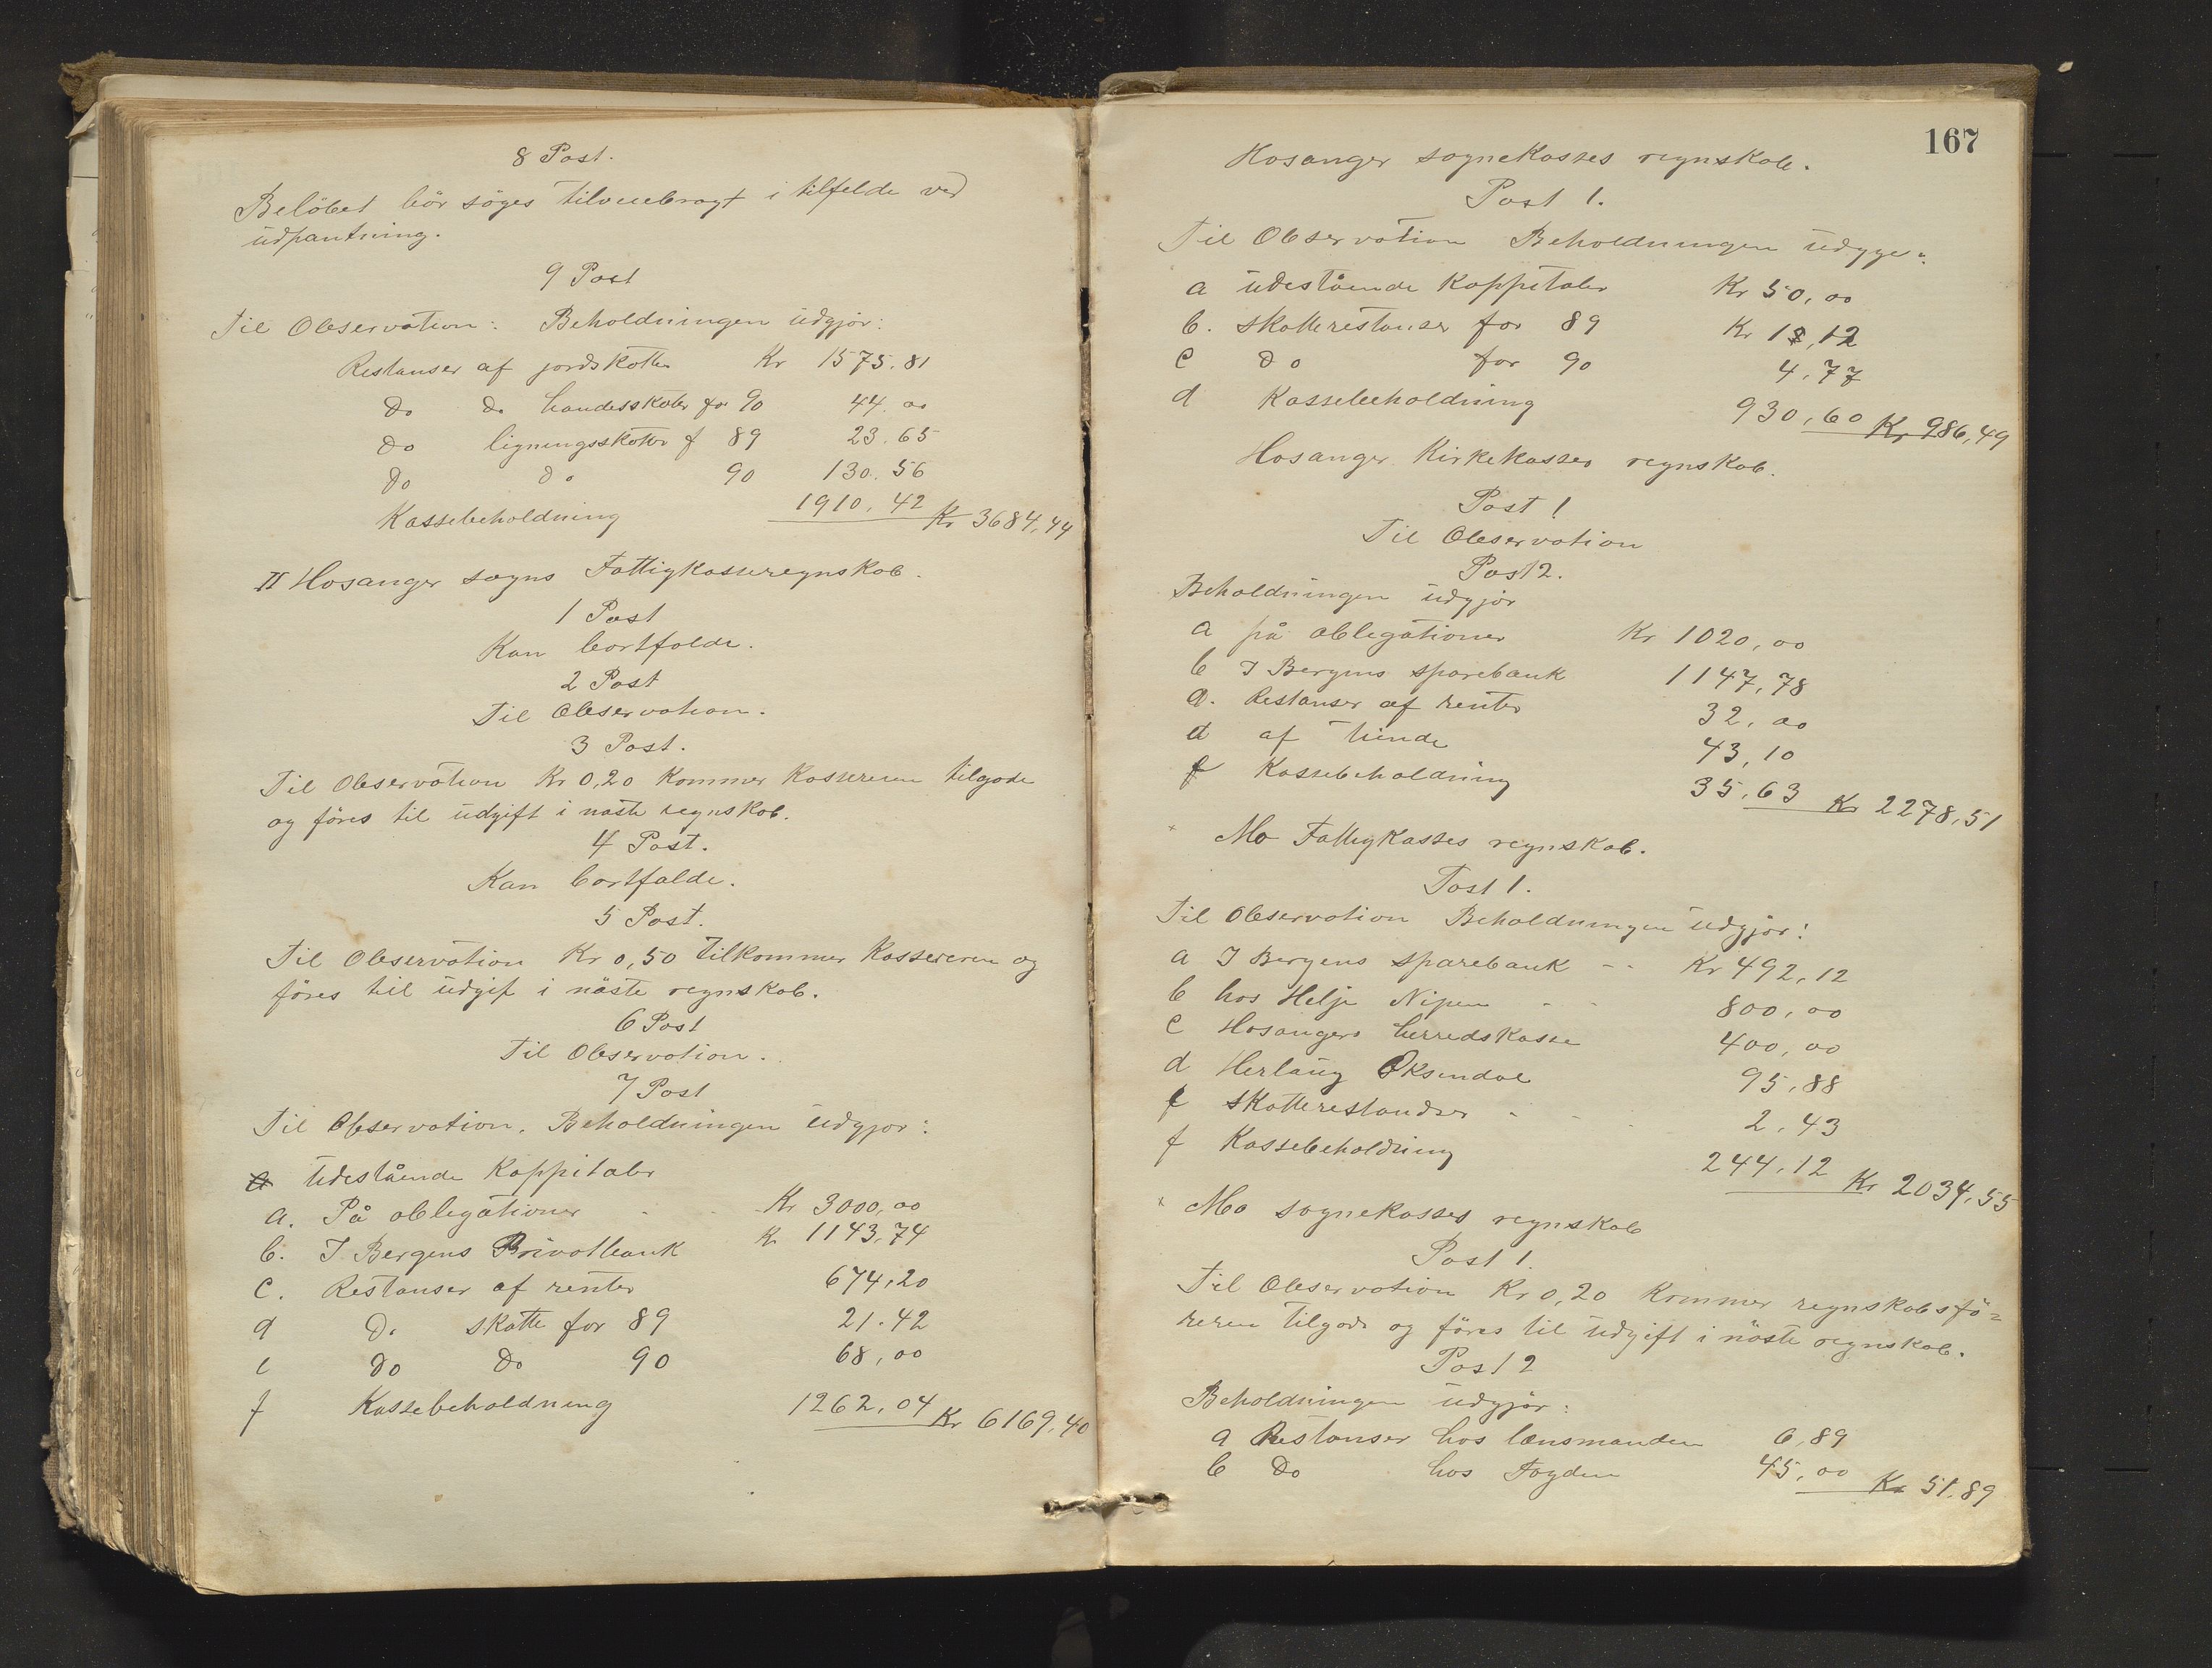 8 Post.
Beløbet bör söges tilveiebragt i tilfelde ved
udpantning.
9 Post
Til Observation: Beholdningen udgjör:
Restanser af jordskatter Kr 1575.81
Do Do handesskater for 90 44.00
Do ligningsskatter f 89 23.65
Do Do 90 130.56
Kassebeholdning 1910,42 Kr 3684,44
II Hosanger sogns Fattigkasseregnskab.
1 Post
Kan bortfalde.
2 Post
Til Observation.
3 Post.
Til Observation Kr 0,20 Kommer Kassereren tilgode
og föres til udgift i naste regnskab.
4 Post.
Kan bortfalde.
5 Post.
Til Observation Kr 0,50 tilkommer Kassereren og
föres til udgif i näste regnskab.
6 Post
Til Observation.
7 Post
Til Observation. Beholdningen udgjor:
a Udestående Kappitaler
a. På obligationer Kr 3000,00
b. I Bergens Privatbank K 1143,74
c. Restanser af renter 674,20
d Do skatte for 89 21.42
e Do Do 90 68,00
f Kassebeholdning 1262,04 Kr 6169,40
167
Hosanger sognekasses regnskab.
Post 1.
Til Observation Beholdningen udgje:
a udestående Kappitaler Kr 50,00
b. skatterestanser for 89 Kr 1,12
c Do for 90 4,77
d Kassebeholdning 930,60 Kr 986,49
Hosanger Kirkekasses regnskab.
Post 1
Til Observation
Post 2.
Beholdningen udgjör
a på obligationer Kr 1020,00
b I Bergens sparebank 1147,78
d. Restanser af renter 32,00
d af tiende 43,10
f Kassebeholdning 35,63 Kr 2278,51
Mo Fattigkasses regnskab.
Post 1.
Til Observation Beholdningen udgjör:
a I Bergens sparebank -- Kr 492,12
b hos Helje Nipen - - 800,00
c Hosangers herredskasse 400,00
d Herlaug Øksendal 95,88
e skatterestandser - - 2,43
f Kassebeholdning 244,12 Kr 2034,55
Mo sognekasses regnskab
Post 1.
Til Observation Kr 0,20 Kommer regnskabsfö=
reren tilgode og föres til udgift i näste regnskab.
Post 2
Beholdningen udgjör:
a Restanser hos lensmanden 6,89
b Do hos Fogden 45,00 Kr 51.89